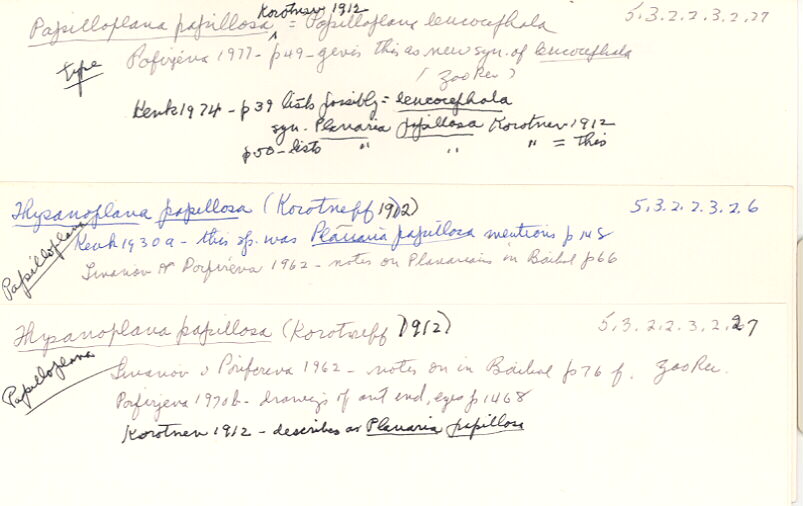 Korotnev 1912
Papilloplana papillosa ^ = Papilloplana leucocephala 5.3.2.2.3.2.27
type Pofirjeva 1977 - p 49 - gives this as new syn. of leucocephala
(Zoo Rec)
Kenk 1974 - p 39 lists possibly = leucocephala
syn. Planaria papillosa Korotnev 1912
p 50 - lists " " " = this
Thysanoplana papillosa (Korotneff 1912) 5.3.2.2.3.2.6
Papilloplana
Kenk 1930a - this sp. was Planaria papillosa mentions p 148
Livanov & Porfireva 1962 - notes on Planarians in Baikal p 66
Thysanoplana papillosa (Korotneff 1912) 5.3.2.2.3.2.27
Papilloplana
Livanov & Porifereva 1962 - notes on in Baikal p 76 f. Zoo Rec.
Porfirjeva 1970b - drawings of ant end, eyes p 1468
Korotnev 1912 - describes as Planaria papillosa